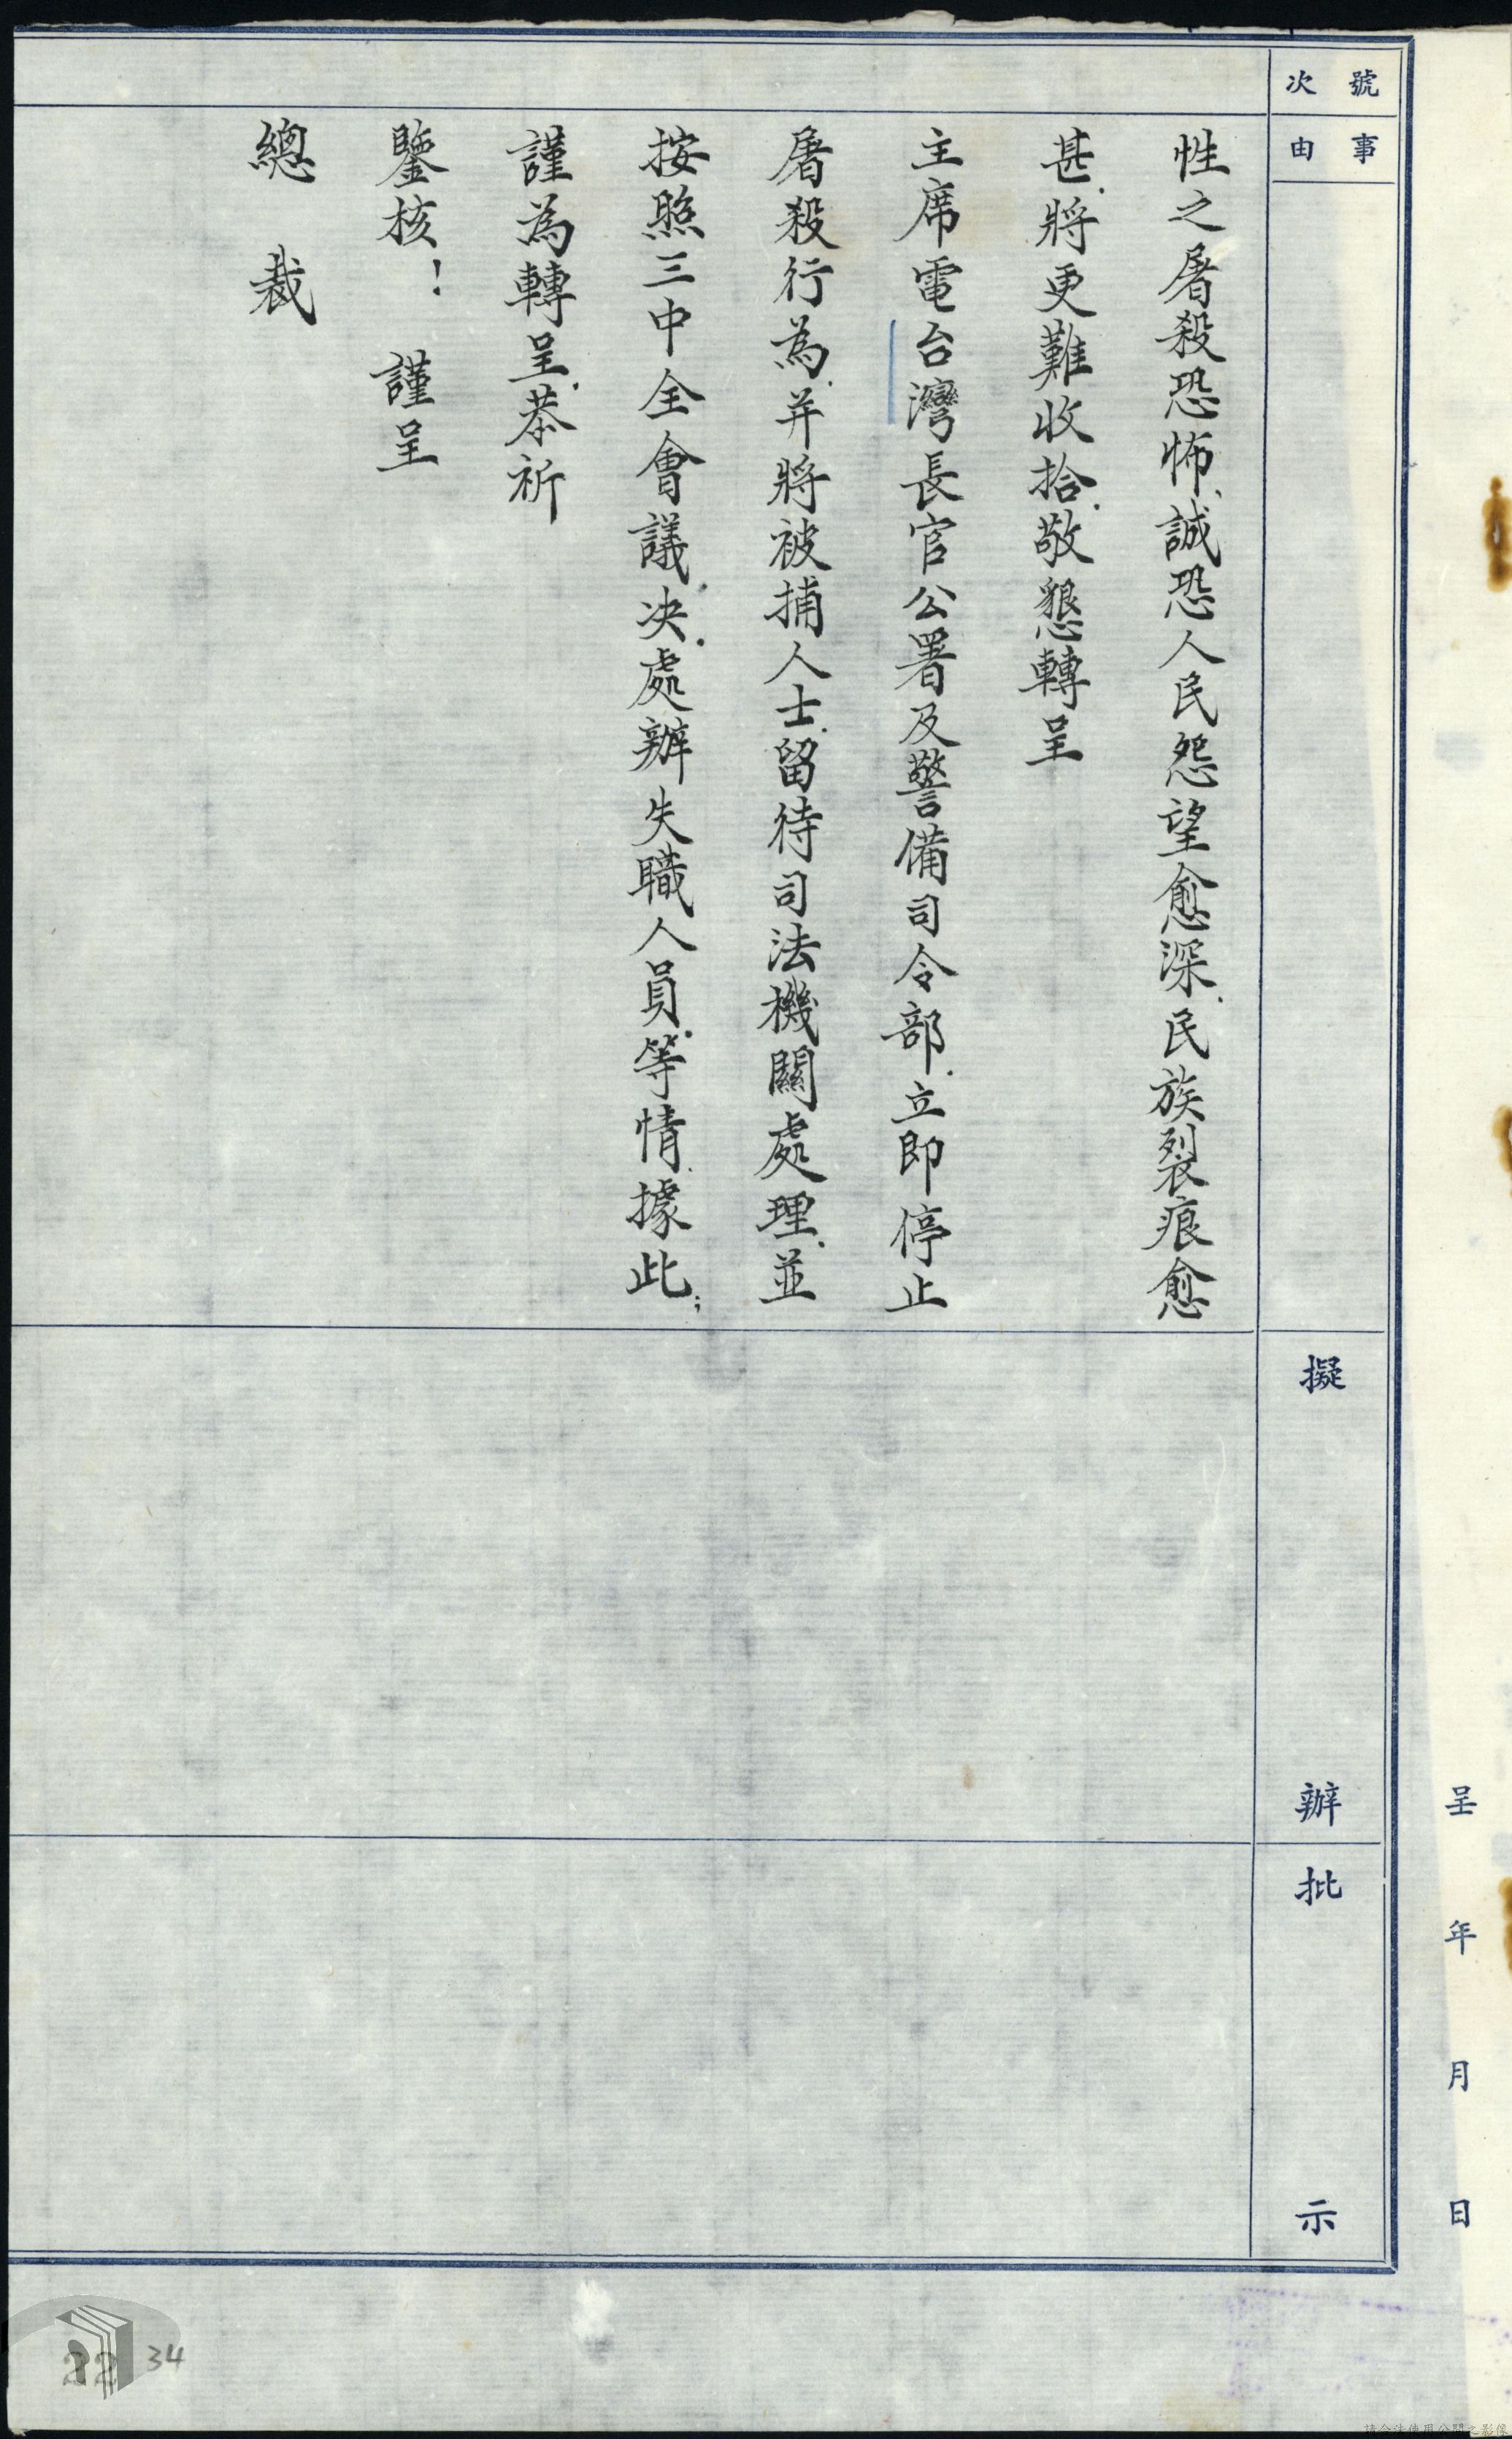 呈 年 月 日
號次
事由
擬辦
批示
性之屠殺恐怖、誠恐人民怨望愈深、民族裂痕愈
甚、將更難收拾、敬懇轉呈
主席電台灣長官公署及警備司令部、立即停止
屠殺行為、并將被捕人士、留待司法機關處理、並
按照三中全會議、決、處辦失職人員、等情、據此；
謹為轉呈、恭祈
鑒核！ 謹呈
總 裁
22 34
請合法使用公開之影像